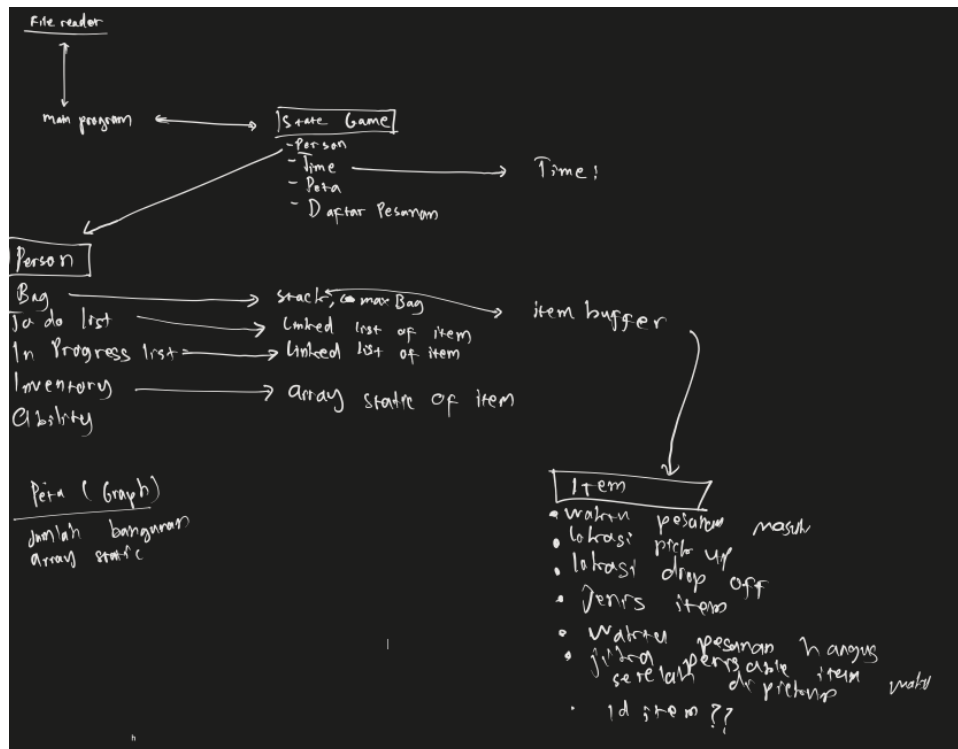 File reader
main program
State Game
- Person
- Time
- Peta
- Daftar Pesanan
Time :
Person
Bag
To do list
In Progress list
Inventory
Ability
stack, max Bag
Linked list of item
Linked list of item
array static of item
item buffer
Peta (Graph)
Jumlah bangunan
array static
Item
• waktu pesanan masuk
• lokasi pick up
• lokasi drop off
• Jenis item
• Waktu pesanan hangus
• jika item
setelah di pickup
• id item ??